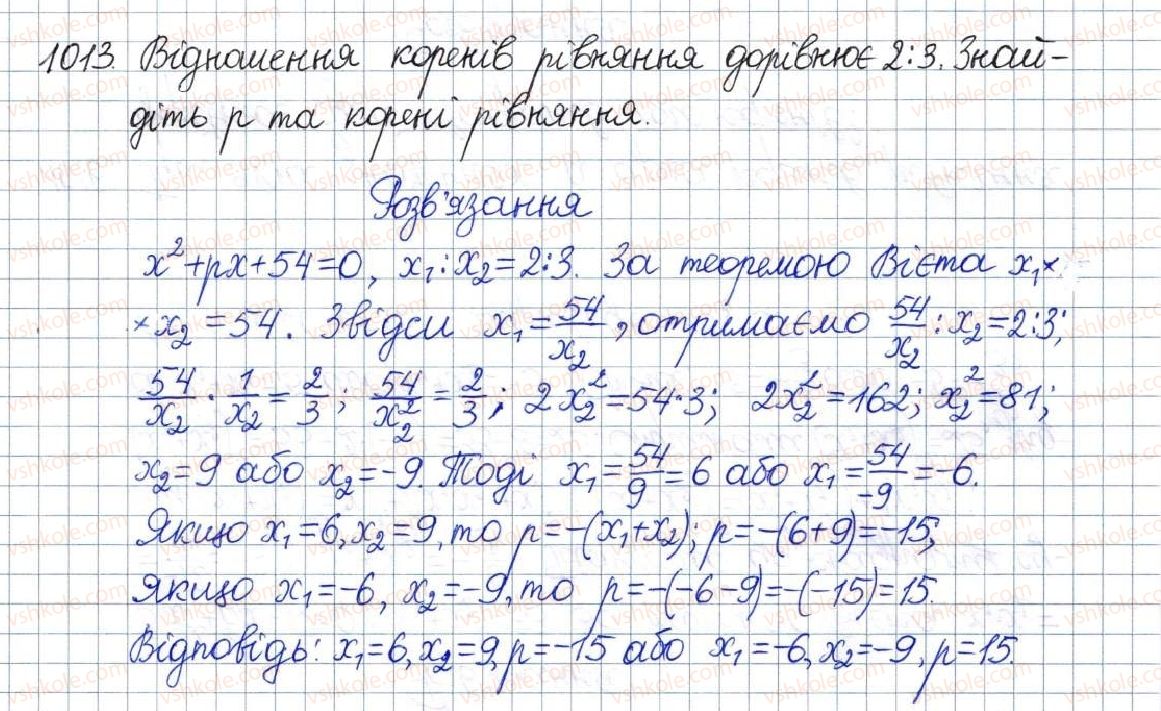 1013. Відношення коренів рівняння дорівнює 2:3. Знай-
діть p та корені рівняння.
Розв'язання
x²+px+54=0, x₁:x₂=2:3. За теоремою Вієта x₁×
×x₂=54. Звідси x₁=54/x₂, отримаємо 54/x₂:x₂=2:3;
54/x₂·1/x₂=2/3; 54/x₂²=2/3; 2x₂²=54·3; 2x₂²=162; x₂²=81;
x₂=9 або x₂=-9. Тоді x₁=54/9=6 або x₁=54/-9=-6.
Якщо x₁=6, x₂=9, то p=-(x₁+x₂); p=-(6+9)=-15;
Якщо x₁=-6, x₂=-9, то p=-(-6-9)=-(-15)=15.
Відповідь: x₁=6, x₂=9, p=-15 або x₁=-6, x₂=-9, p=15.